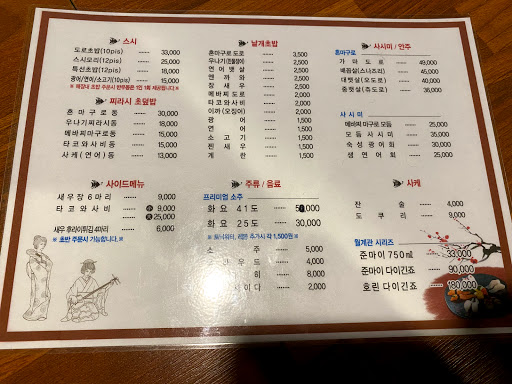 스시
도로초밥(10pis) 33,000
스시모리(12pis) 25,000
특선초밥(12pis) 18,000
광어/연어/소고기(10pis) 15,000
찌라시 초덮밥
혼마구로동 30,000
우나기찌라시동 18,000
메바찌마구로동 15,000
타코와사비동 15,000
사케(연어)동 13,000
사이드메뉴
새우장 6마리 9,000
타코와사비 小 9,000
大 25,000
새우 후라이튀김 4마리 6,000
※ 초반 주문시 가능합니다. ※
낱개초밥
혼마구로 도로 3,500
우나기(민물장어) 2,500
연어뱃살 2,500
엔가와 2,500
참새우 2,500
메바찌도로 2,000
타코와사비 2,000
이까(오징어) 2,000
광어 1,500
연어 1,500
소고기 1,500
찐새우 1,500
계란 1,500
주류 / 음료
프리미엄 소주
화요 41도
화요 25도 30,000
소주 5,000
4,000
8,000
2,000
사시미 / 안주
혼마구로
가마도로 49,000
배꼽살(스나즈리) 45,000
대뱃살(오도로) 40,000
중뱃살(쥬도로) 36,000
사시미
메바찌마구로 모듬 25,000
모듬 사시미 35,000
숙성 광어회 30,000
생연어회 25,000
사케
잔술 4,000
도쿠리 9,000
월계관 시리즈
준마이 750㎖ 33,000
준마이 다이긴죠 90,000
호린 다이긴죠 180,000